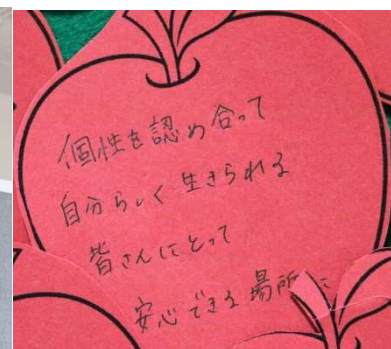 個性を認め合って
自分らしく生きられる
皆さんにとって
安心できる場所に